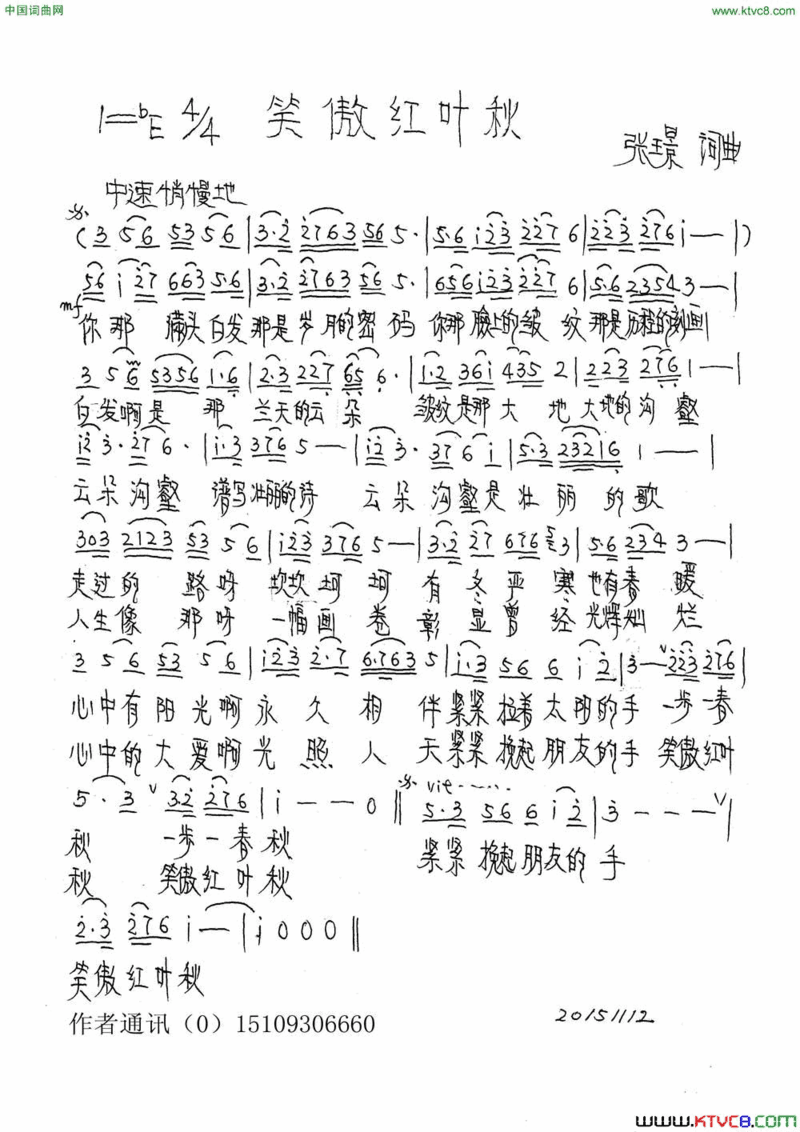 中国词曲网
www.ktvc8.com
1=bE 4/4 笑傲红叶秋
张璟 词曲
中速悄慢地
(3 56 53 56|3·2 2763 56 5·|5·6 123 227 6|223 276 1——|)
56 1 27 663 5·6|3·2 2763 56 5·|656 123 227 6|5·6 2354 3——|
mf
你那 满头白发那是岁月的密码 你那脸上的皱纹那是历程的刻画
3 56 5356 1·6|2·3 227 65 6·|1·2 361 435 2|223 276 1——|
白发啊是 那 兰天的云朵 皱纹是那大 地大地的沟壑
12 3·276·|1·3 376 5——|12 3·376 1|5·3 23216 1——|
云朵沟壑 谱写壮丽的诗 云朵沟壑是壮丽的歌
303 2123 53 56|123 376 5——|3·2 227 676 3|5·6 234 3——|
走过的 路呀 坎坎坷坷 有冬严寒也有春暖
人生像 那呀 一幅画卷彰显曾经光辉灿烂
3 56 53 56|123 2·7 6·763 5|1·3 56 6 12|3——223 276|
心中有阳光啊永久相伴紧紧拉着太阳的手 一步一春
心中的大爱啊光照人天紧紧挽起朋友的手 笑傲红叶
5·3 32 276|1——— 0‖
rit......
5·3 56 6 12|3———|
秋 一步一春秋
紧紧挽起朋友的手
秋 笑傲红叶秋
2·3 276 1—|1 0 0 0‖
笑傲红叶秋
作者通讯（0）15109306660
20151112
www.KTVC8.com